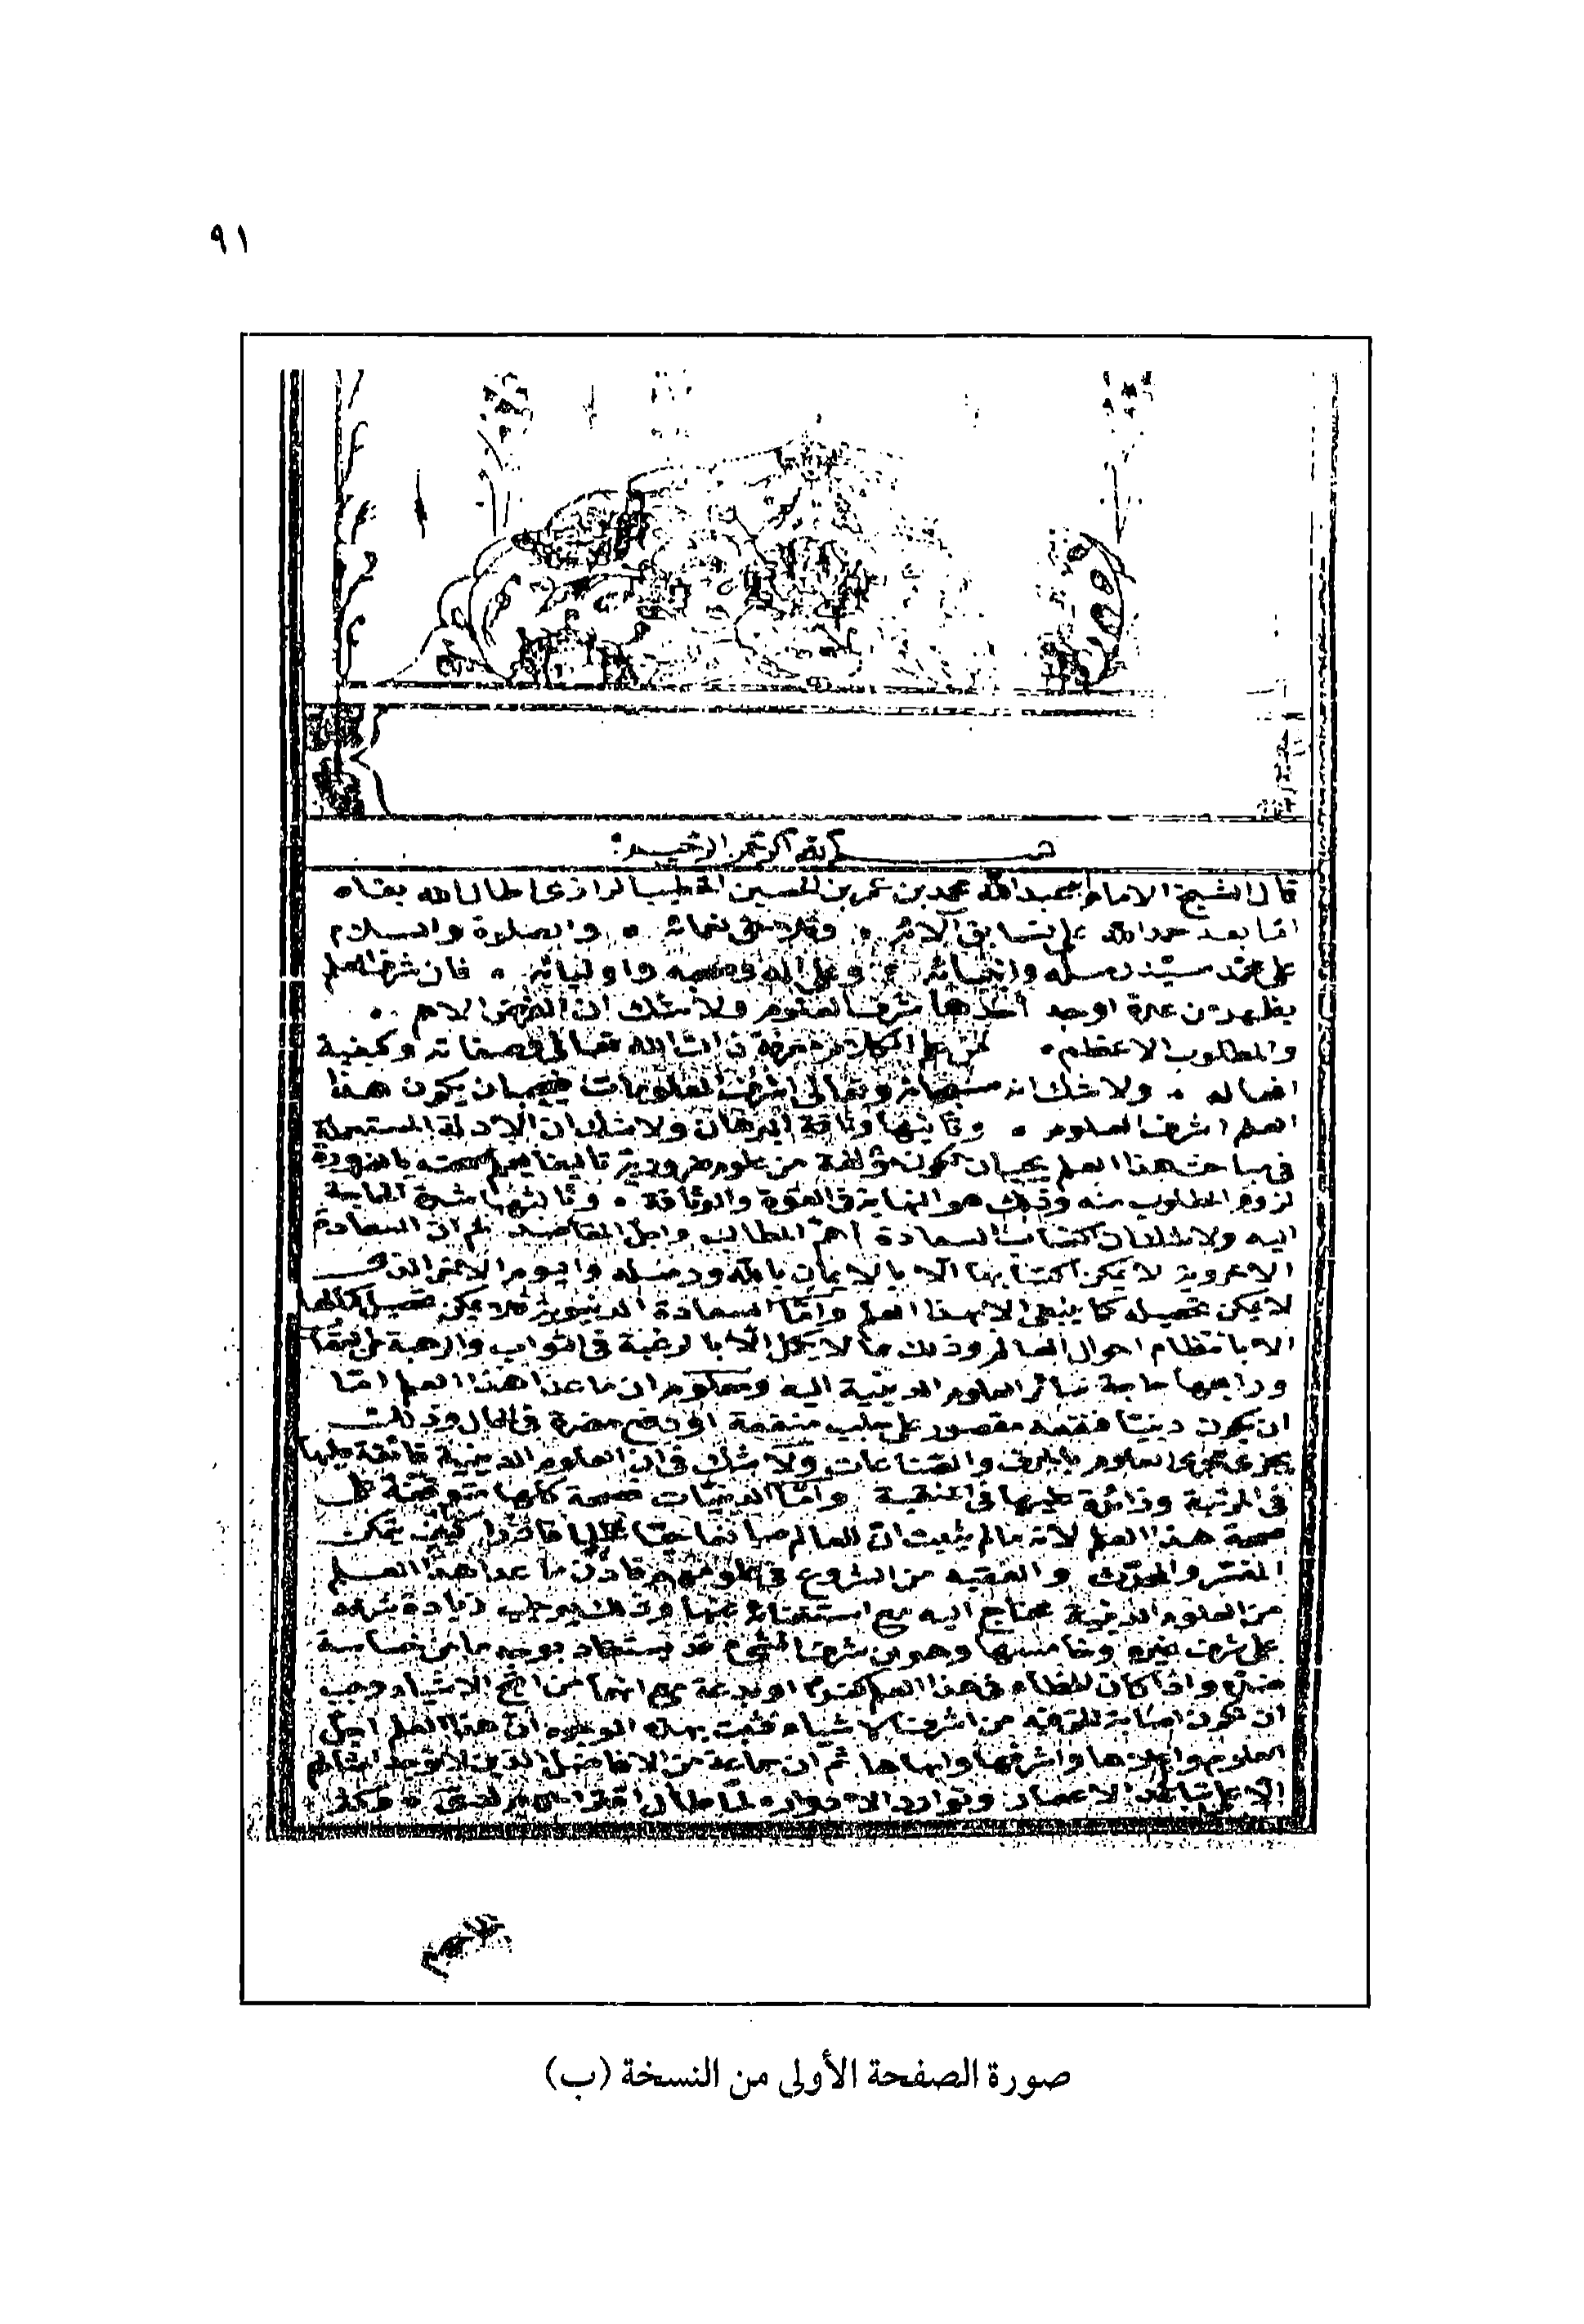 ٩١
بسم الله الرحمن الرحيم
قال الشيخ الامام ابو عبدالله محمد بن عمر بن الحسين الخطيب الرازي اطال الله بقاه
اما بعد حمدا لله على تسابق آلائه وتلاحق نعمائه والصلوة والسلام
على محمد سيد رسله وانبيائه وعلى اله وصحبه واوليائه فان شرف العلم
يظهر من عدة اوجه أحدها شرف المعلوم ولا شك ان الغرض الاهم
والمطلوب الاعظم من علم الكلام معرفة ذات الله تعالى وصفاته وكيفية
افعاله ولا شك انه سبحانه وتعالى اشرف المعلومات فيجب ان يكون هذا
العلم اشرف العلوم وثانيها وثاقة البرهان ولا شك ان الادلة المستعملة
في مباحث هذا العلم يجب ان تكون مؤلفة من علوم ضرورية تاليفا يعلم صحته بالضرورة
لزوم المطلوب منه وذلك هو النهاية في القوة والوثاقة وثالثها شدة الحاجة
اليه ولا شك ان اكتساب السعادة اهم المطالب واجل المقاصد ثم ان السعادة
الاخروية لا يمكن اكتسابها الا بالايمان بالله ورسله واليوم الاخر الذى
لا يمكن تحصيله كما ينبغى الا بهذا العلم واما السعادة الدنيوية فلا يمكن تحصيل كمالها
الا بانتظام احوال العالم وذلك ما لا يكمل الا بالرغبة في الثواب والرهبة من العقاب
ورابعها حاجة سائر العلوم الدينية اليه ومعلوم ان ما عدا هذا العلم اما
ان يكون دينيا فنفعه مقصور على جلب منفعة او دفع مضرة في الحال وذلك
يجرى مجرى العلوم بالحرف والصناعات ولا شك في ان العلوم الدينية فائقة عليها
في المرتبة وزائدة عليها في المنقبة واما الدينيات فصحة كلها متوقفة على
صحة هذا العلم لانه ما لم يثبت ان للعالم صانعا حيا عالما قادرا كيف يتمكن
المفسر والمحدث والفقيه من الشروع في علومهم فاذن ما عدا هذا العلم
من العلوم الدينية محتاج اليه مع استغنائه عنها وذلك يوجب زيادة شرفه
على شرف غيره وخامسها وهو ان شرف الشىء قد يستفاد بوجه ما من خساسة
ضده واذا كان الخطاء في هذا العلم كفرا او بدعة مع انهما من اقبح الاشياء وجب
ان تكون اصابة الحق فيه من اشرف الاشياء فثبت بهذه الوجوه ان هذا العلم اجل
العلوم واعلاها واشرفها وابهاها ثم ان جماعة من الافاضل الذين لا يوجد امثالهم
الا على تباعد الاعصار وتوارد الادوار لما طال اقتراحهم لدى وكثر
صورة الصفحة الأولى من النسخة (ب)